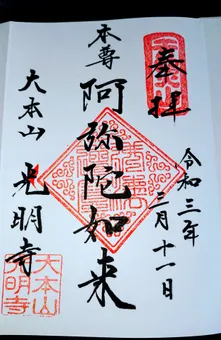 奉拝
令和三年
三月十一日
本尊
阿弥陀如来
大本山
光明寺
大本山
光明寺